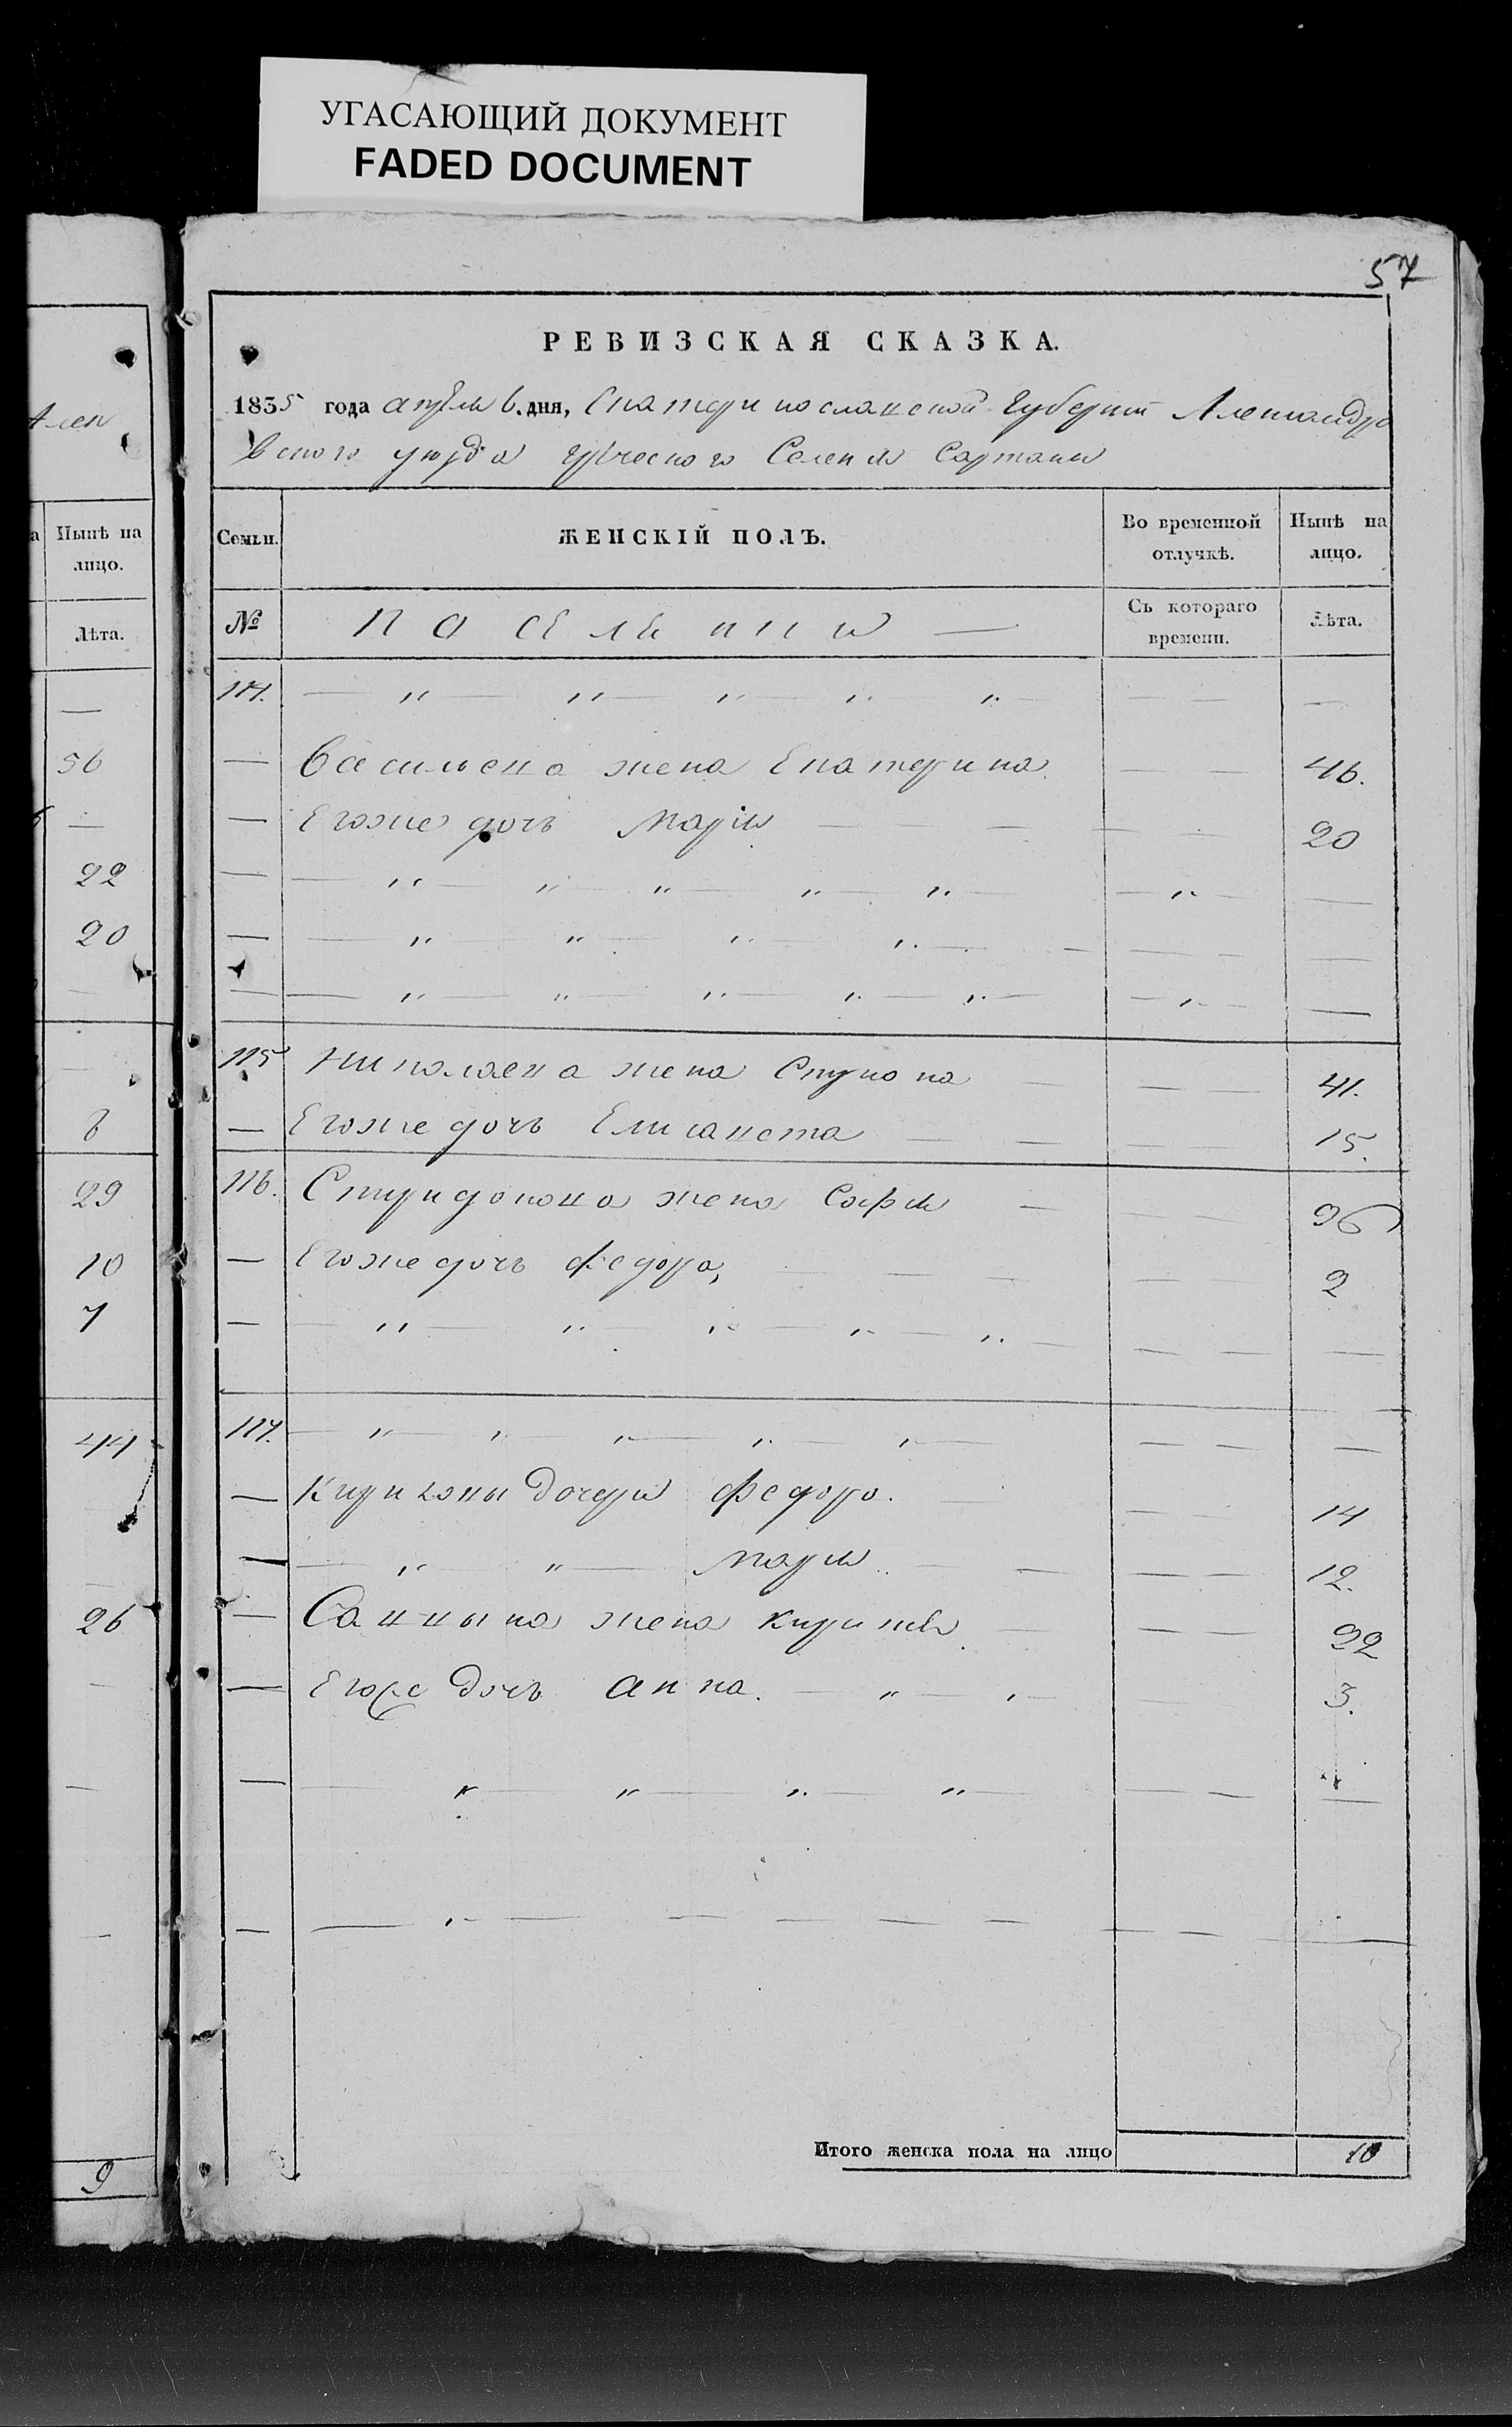 УГАСАЮЩИЙ ДОКУМЕНТ
FADED DOCUMENT
57
РЕВИЗСКАЯ СКАЗКА.
1835 года апреля 6. дня, Екатеринославской Губернiи Александро
вского уезда греческого Селения Сартаны
Семьи. ЖЕНСКІЙ ПОЛЪ. Во временной отлучкѣ. Нынѣ на лицо.
№ поселяни — Съ котораго времени. Лѣта.
114. — „ — „ — „ — „ — „ — — — —
— Васильева жена Екатерина — — 46.
— Егоже дочь Марiя — — — — 20
— — „ — „ — „ — „ — „ — — „ — —
— — „ — „ — „ — „ — — — —
— — „ — „ — „ — „ — „ — — „ — —
115 Николаева жена — — 41.
— Егоже дочь Елисавета — — — — 15.
116. Спиридонова жена Софiя — — — 26
— Егоже дочь Федора, — — — — 2
— — „ — „ — „ — „ — „ — — — —
117. — „ — „ — „ — „ — „ — — — —
— дочери Федора. — — — 14
— — „ — „ — Марiя — — — 12.
— Саввына жена — — — 22
— Егоже дочь Анна. — „ — „ — — 3.
— — „ — „ — „ — „ — — — —
— — „ — — — — — — —
Итого женска пола на лицо 10
Алек
Нынѣ на
лицо.
Лѣта.
—
56
—
22
20
—
—
8
29
10
7
44
26
—
—
9